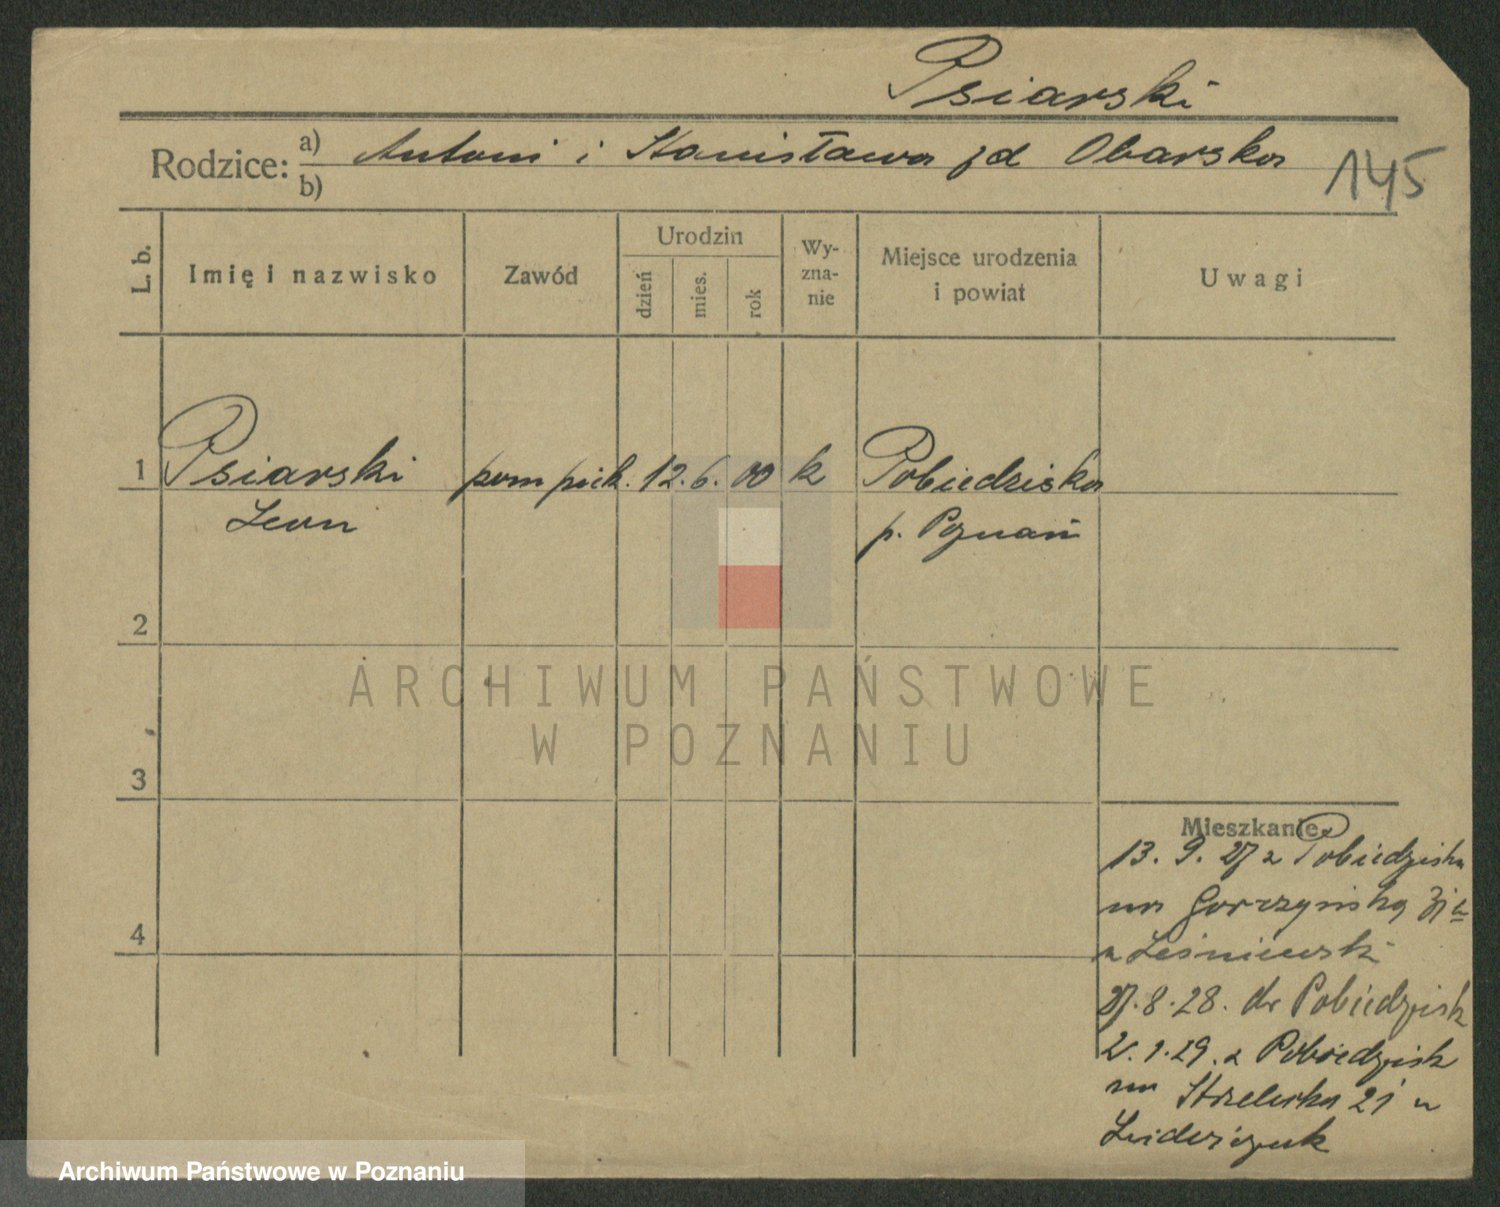 Psiarski
Rodzice: a) Antoni i Stanisława zd Obarska
b)
145
L. b.
Imię i nazwisko
Zawód
Urodzin
dzień
mies.
rok
Wy-
zna-
nie
Miejsce urodzenia
i powiat
Uwagi
1 Psiarski pom piek. 12. 6. 00 k Pobiedziska
Leon p. Poznań
2
3
4
Mieszkanie
13. 9. 27 z Pobiedziska
na Gorczyńską
u Leśniewsk
27. 8. 28. do Pobiedzisk
2. 1. 29. z Pobiedzisk
na Strzelecka 21 u
ARCHIWUM PAŃSTWOWE
W POZNANIU
Archiwum Państwowe w Poznaniu